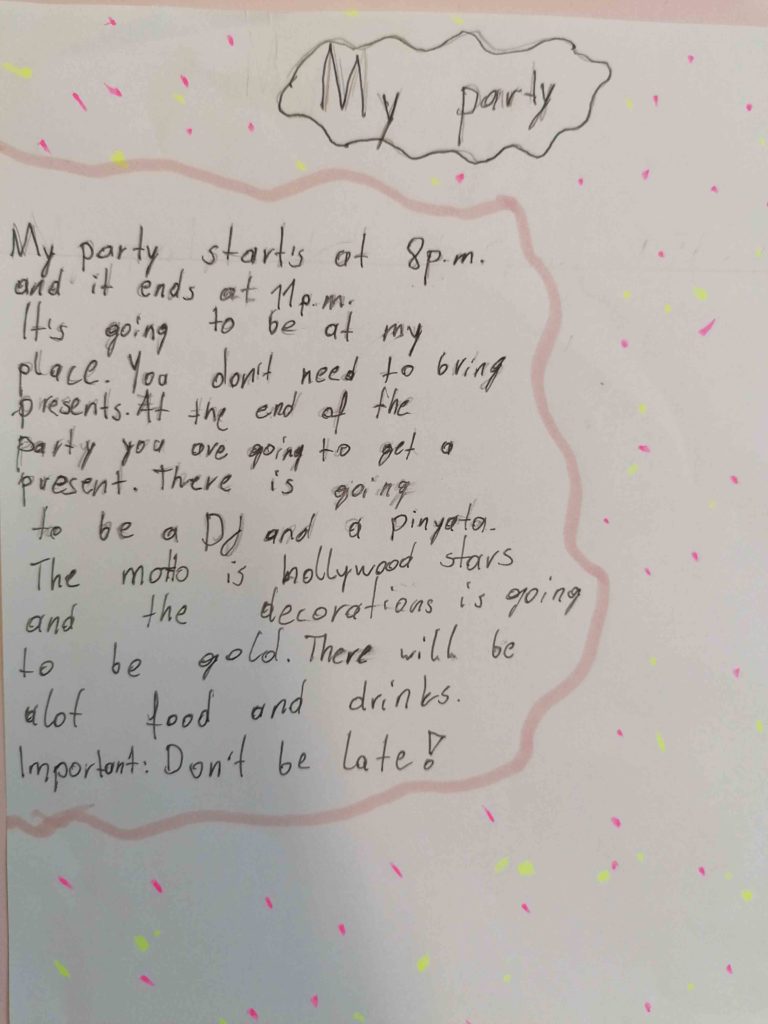 My party
My party start's at 8p.m.
and it ends at 11p.m.
It's going to be at my
place. You don't need to bring
presents. At the end of the
party you are going to get a
present. There is going
to be a DJ and a pinyata.
The motto is hollywood stars
and the decorations is going
to be gold. There will be
alot food and drinks.
Important: Don't be late!